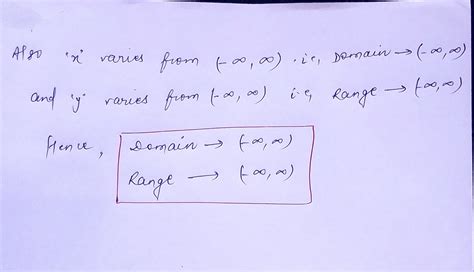 Also 'x' varies from (-∞, ∞) . i.e, Domain → (-∞, ∞)
and 'y' varies from (-∞, ∞) i.e, Range → (-∞, ∞)
Hence,
Domain → (-∞, ∞)
Range → (-∞, ∞)